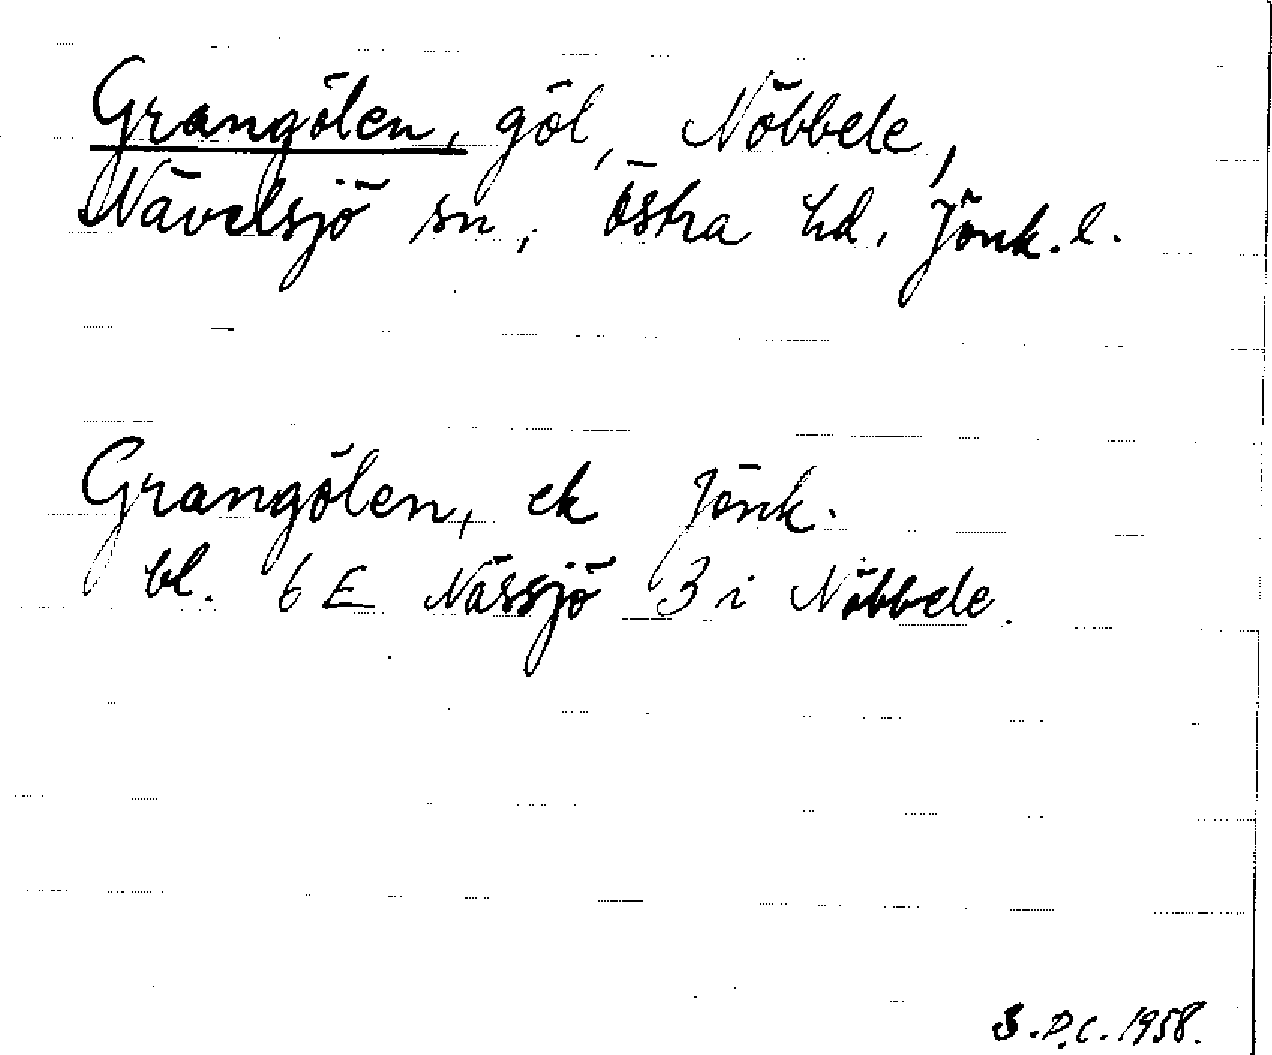 Grangölen, göl, Nöbbele,
Nävelsjö sn, Östra hd, Jönk. l.
Grangölen, ek Jönk.
bl. 6 E Nässjö 3 i Nöbbele.
S.P.C. 1958.